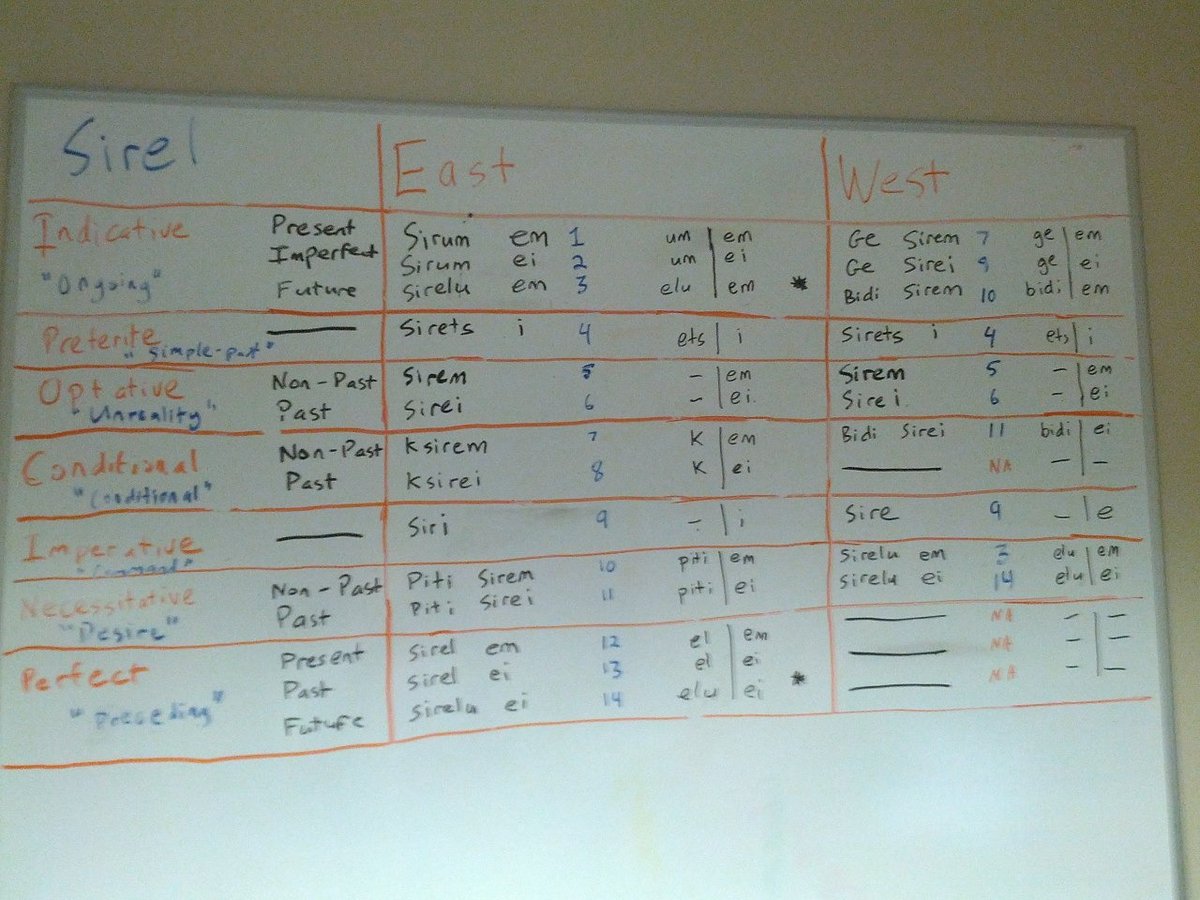 Sirel East West
Indicative Present Sirum em 1 um em Ge Sirem 7 ge em
Imperfect Sirum ei 2 um ei Ge Sirei 9 ge ei
"Ongoing" Future Sirelu em 3 elu em * Bidi Sirem 10 bidi em
Preterite — Sirets i 4 ets i Sirets i 4 ets i
"Simple-past"
Optative Non-Past Sirem 5 - em Sirem 5 - em
"Unreality" Past Sirei 6 - ei Sirei 6 - ei
Conditional Non-Past Ksirem 7 K em Bidi Sirei 11 bidi ei
"Conditional" Past Ksirei 8 K ei — NA - -
Imperative — Siri 9 - i Sire 9 - e
"Command"
Necessitative Non-Past Piti Sirem 10 piti em Sirelu em 3 elu em
"Desire" Past Piti Sirei 11 piti ei Sirelu ei 14 elu ei
Perfect Present Sirel em 12 el em — NA - -
Past Sirel ei 13 el ei — NA - -
"Preceding" Future Sirelu ei 14 elu ei * — NA - -